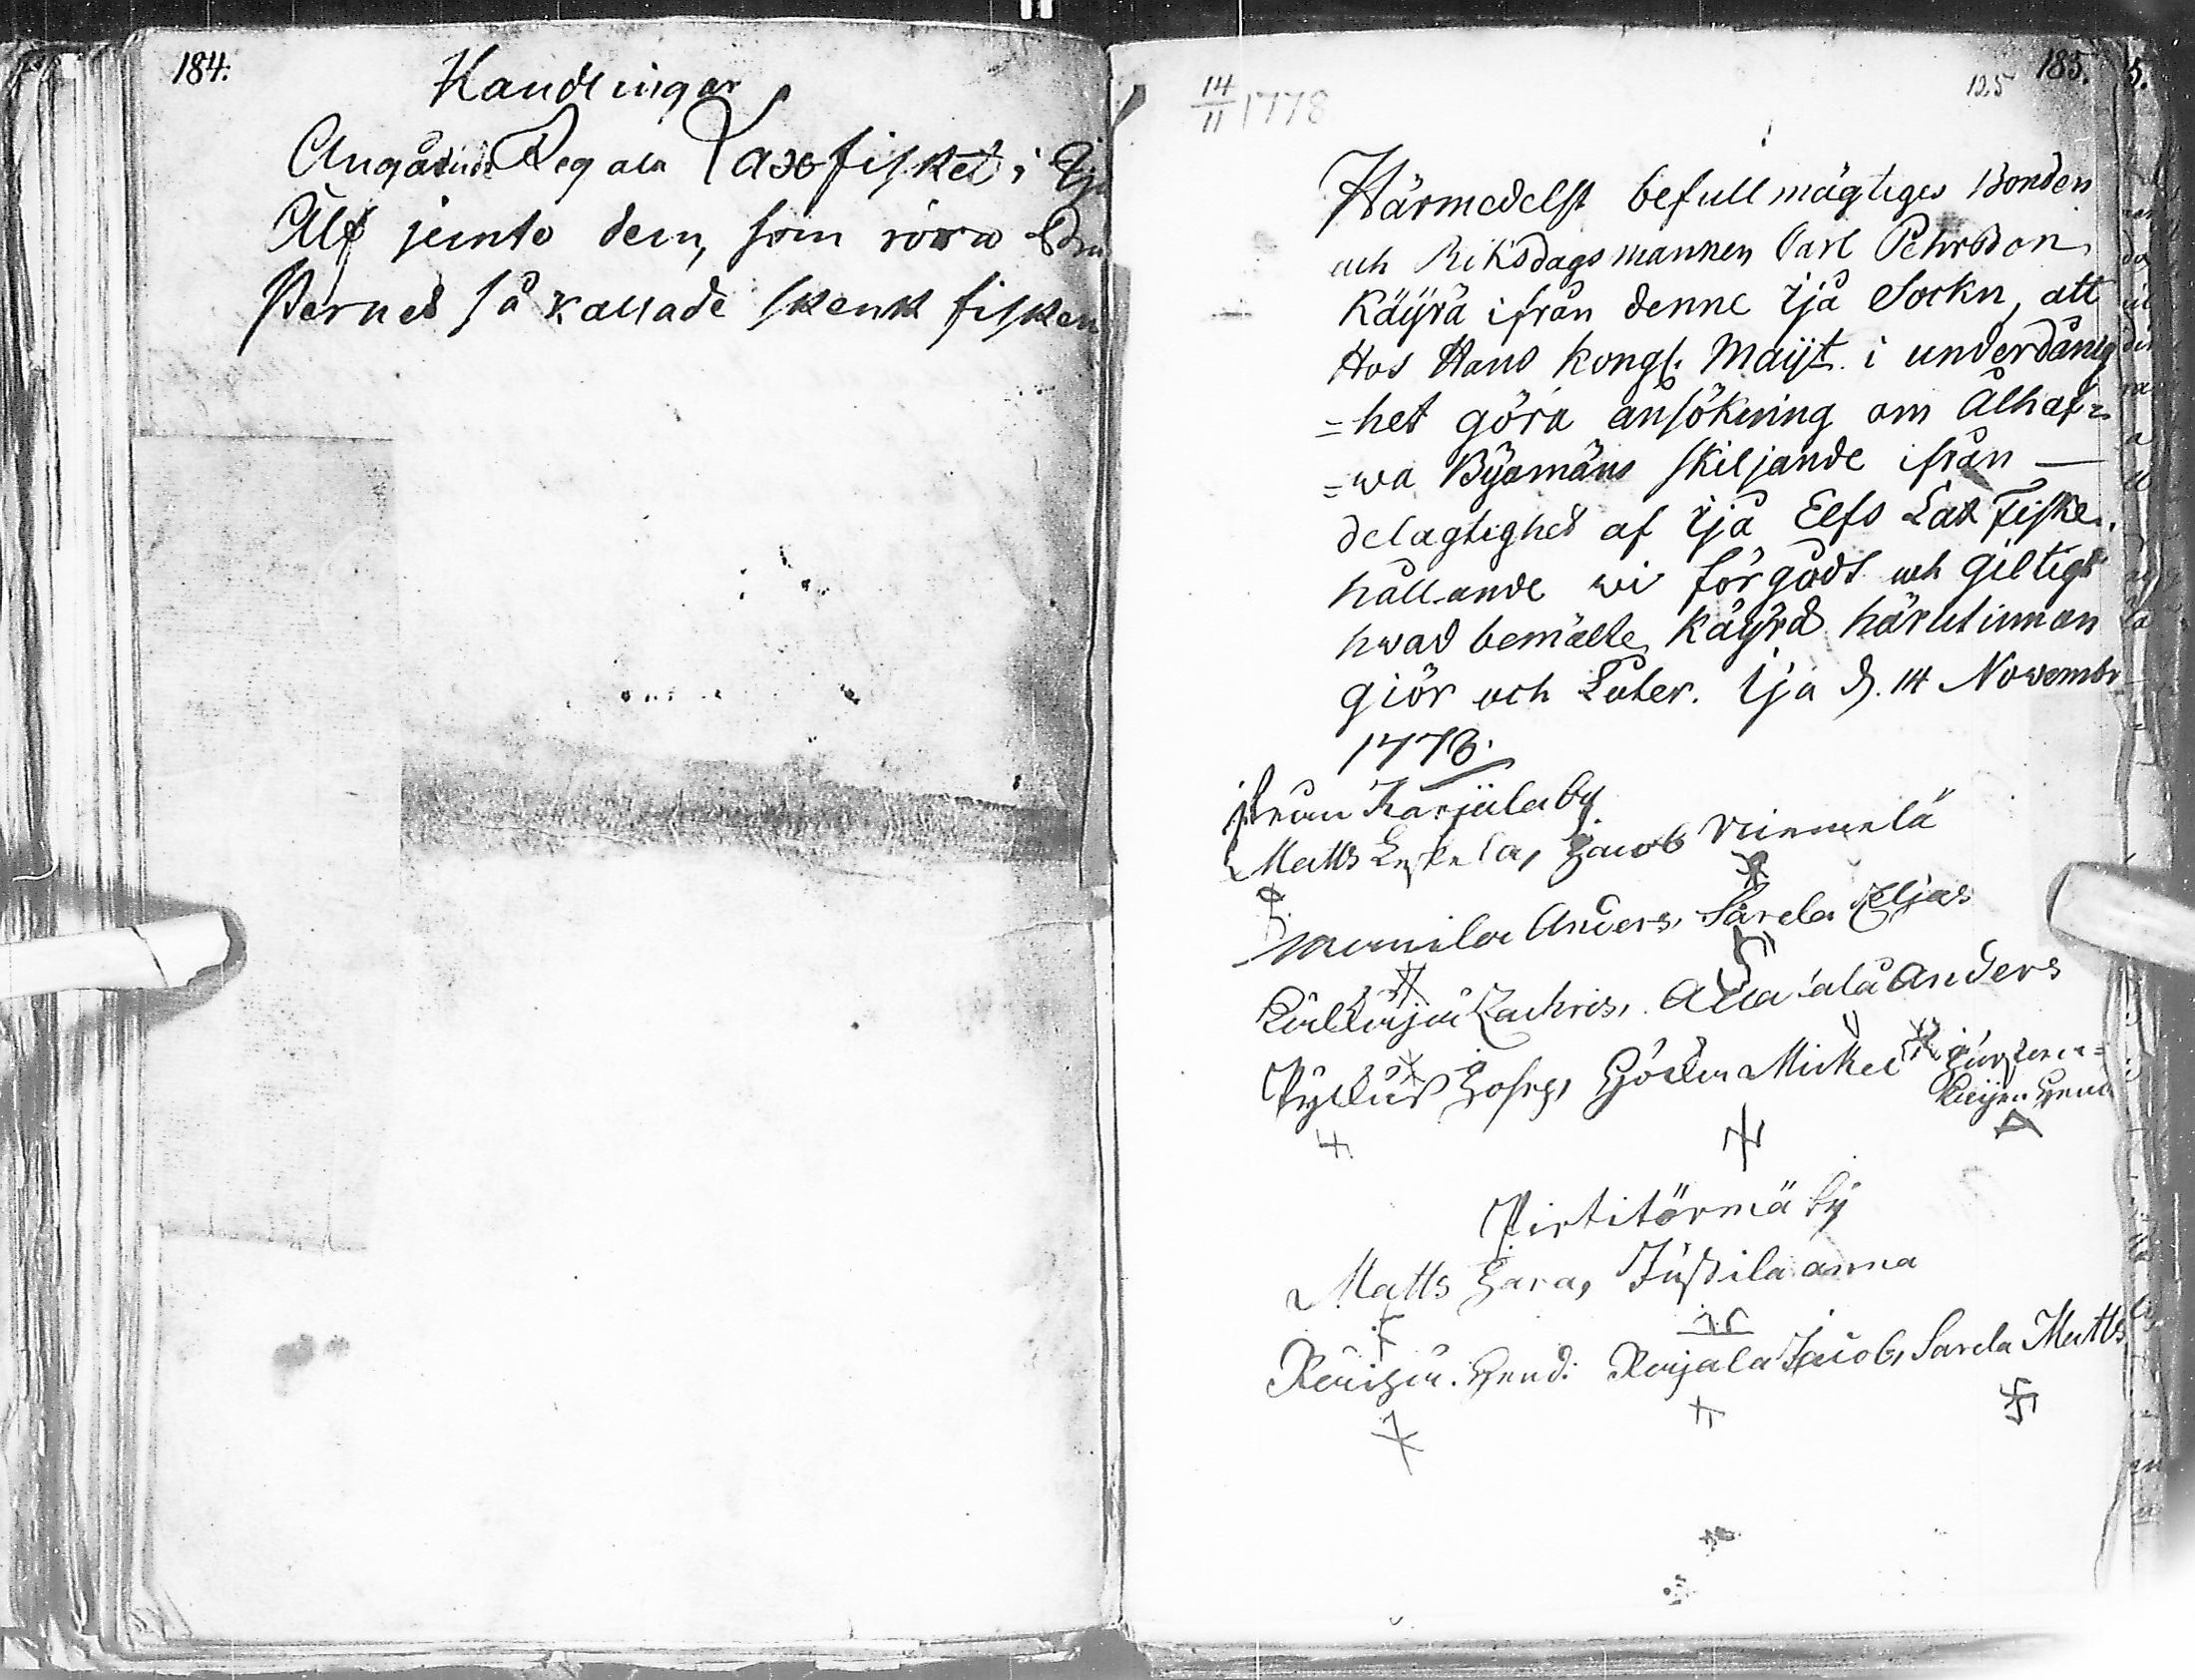 184.
Handlingar
Angående Regala Laxfisket i Ijo
Älf jemte dem, som röra
så kallade skenk fisken
14/11 1778
125 185.
Härmedelst befullmägtiges Bonden
och Riksdagsmannen Carl Pehrsson
Käyrä ifrån denne Ijå Sockn, att
Hos Hans Kongl. Maijt. i underdånig
=het göra ansökning om Ålhaf=
=wa Byamäns skiljande ifrån —
delagtighet af Ijå Elfs Lax Fiske.
hållande wi för godt och giltigt
hwad bemälte Käyrä härutinnan
giör och Låter. Ijå d. 14 Novembr
1778.
ifrån Karjula by
Matts Jacob Niemelä
Anders, Sarela Elias
Zachris, Anders
Josep, Mickel
Pirtitörmä by
Matts Hara, Jussila anna
Hend: Karjala Jacob, Sarela Matts